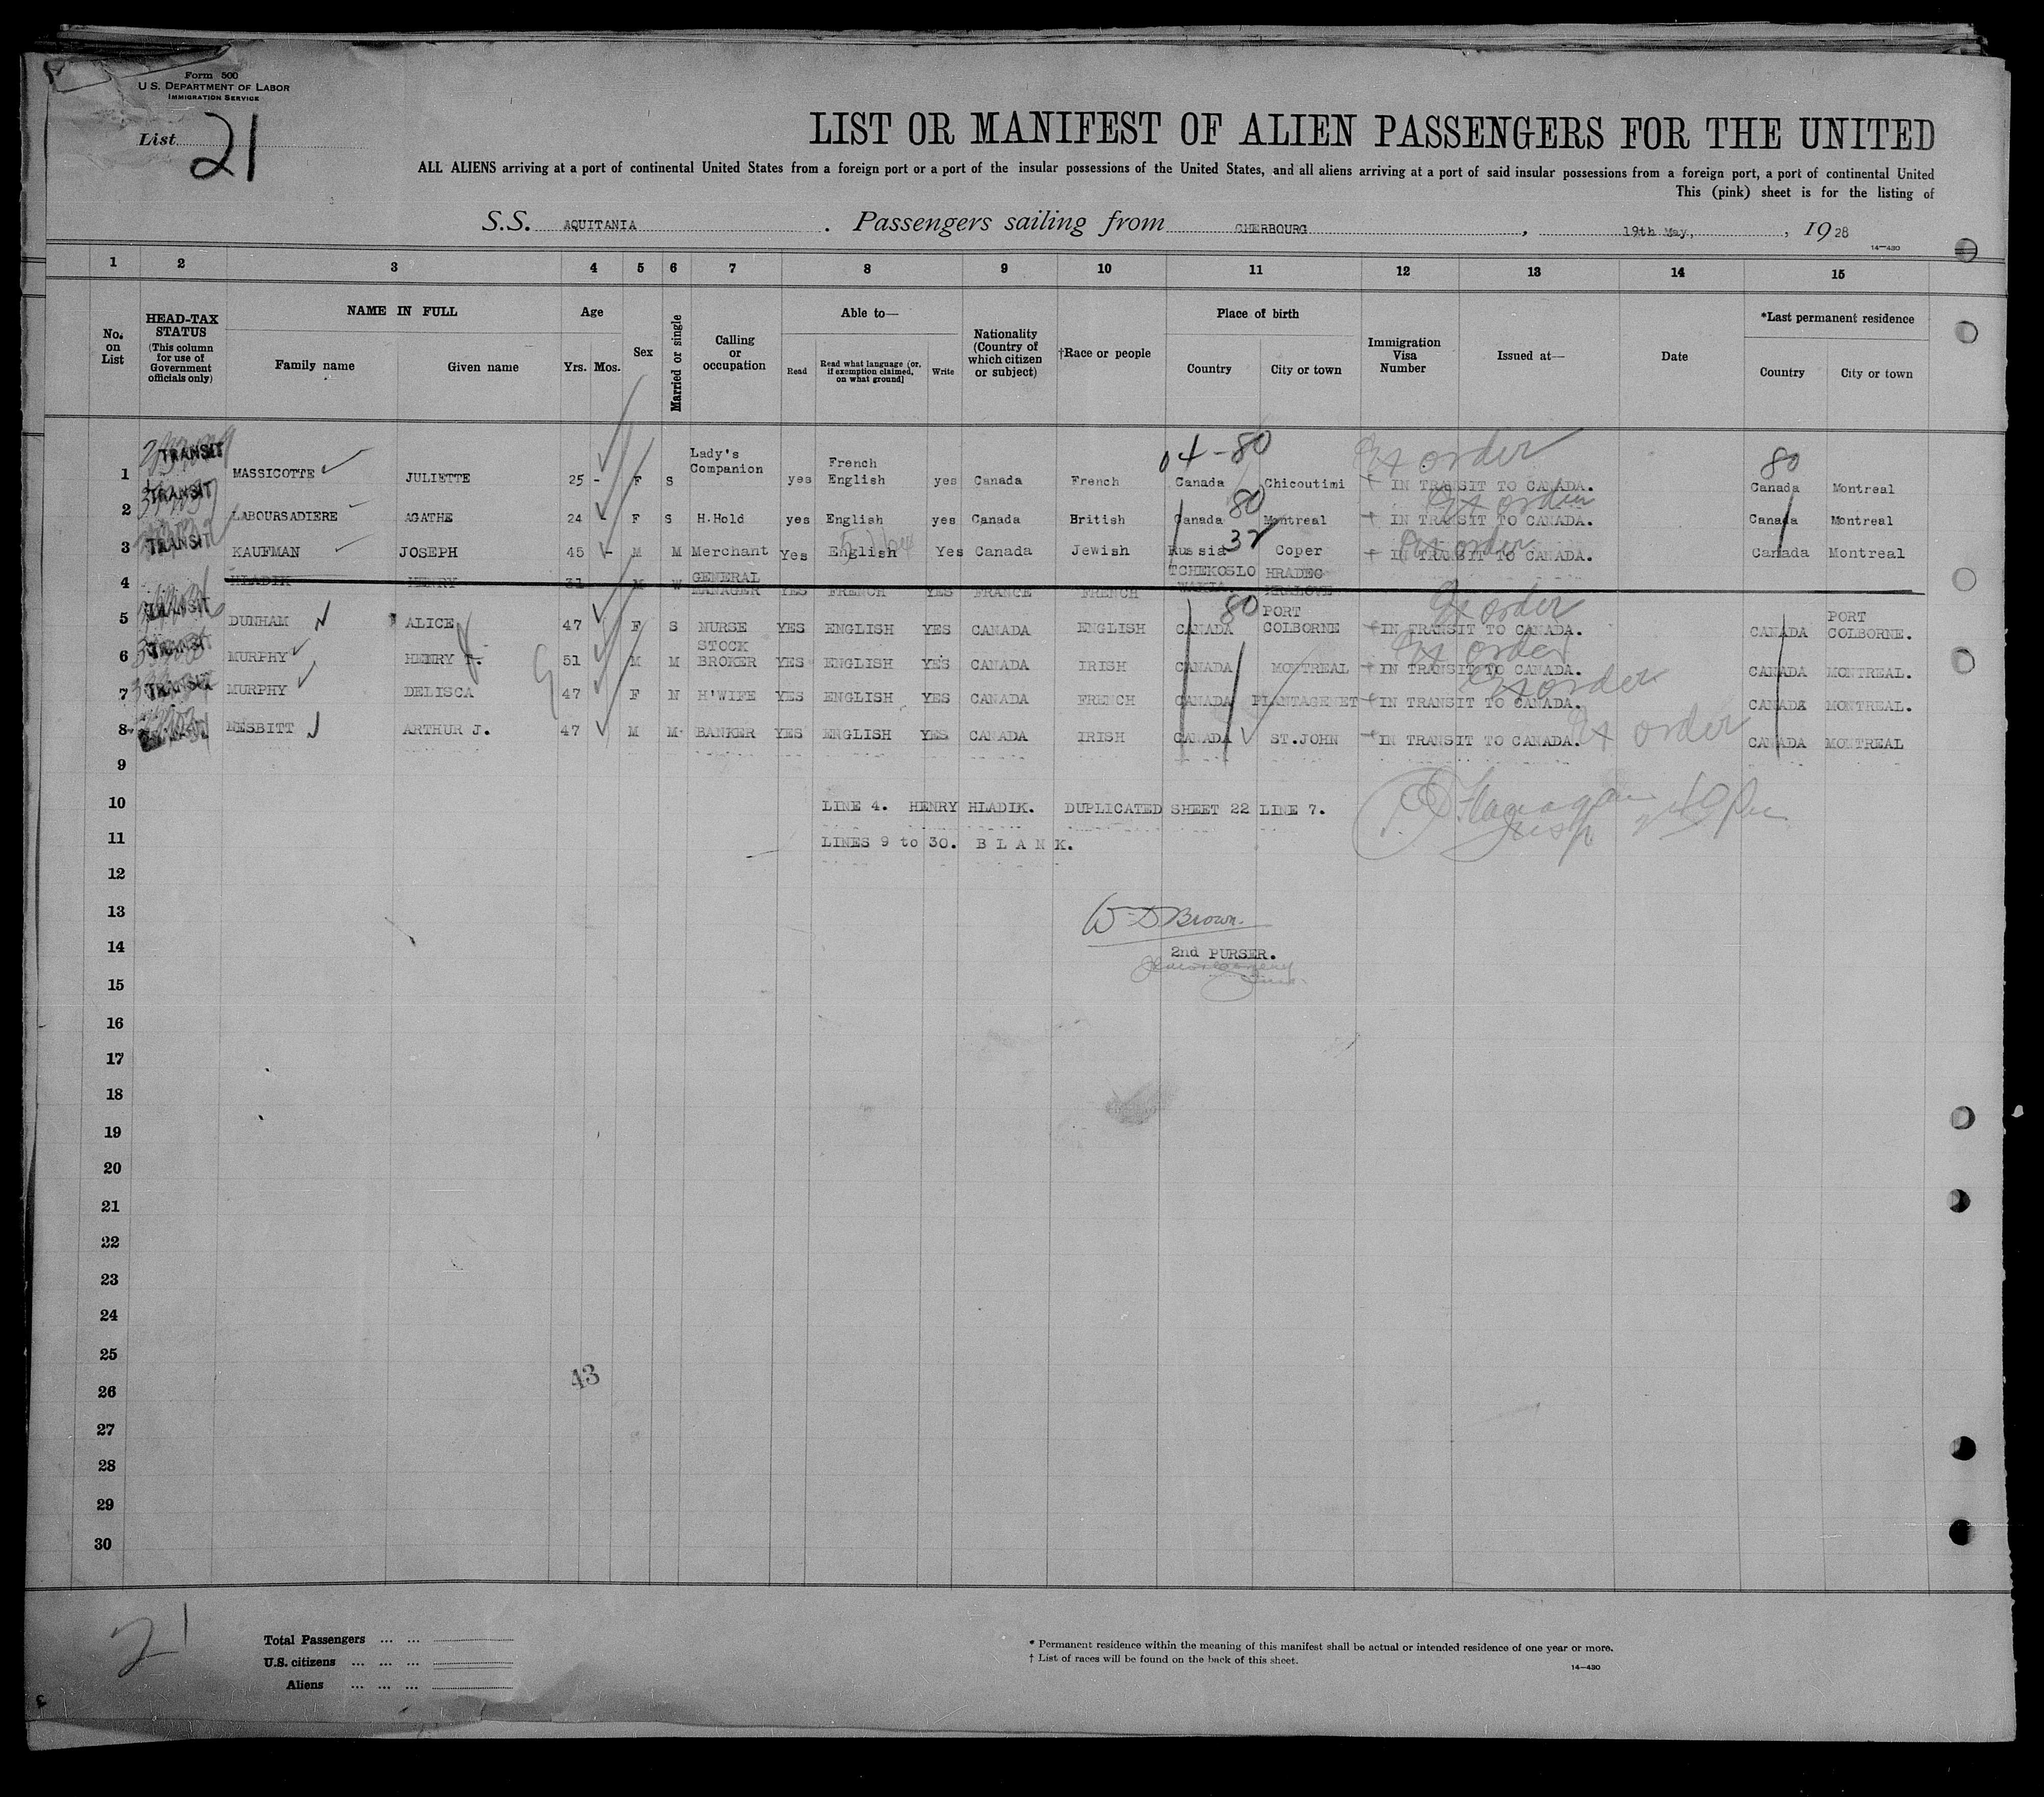 Form 500
U.S. DEPARTMENT OF LABOR
IMMIGRATION SERVICE
List 21
LIST OR MANIFEST OF ALIEN PASSENGERS FOR THE UNITED
ALL ALIENS arriving at a port of continental United States from a foreign port or a port of the insular possessions of the United States, and all aliens arriving at a port of said insular possessions from a foreign port, a port of continental United
This (pink) sheet is for the listing of
S.S. AQUITANIA. Passengers sailing from CHERBOURG, 19th May, , 1928
14—430
1 2 3 4 5 6 7 8 9 10 11 12 13 14 15
No. on List
HEAD-TAX STATUS (This column for use of Government officials only)
NAME IN FULL
Family name Given name
Age
Yrs. Mos.
Sex
Married or single
Calling or occupation
Able to—
Read Read what language (or, if exemption claimed, on what ground] Write
Nationality (Country of which citizen or subject)
†Race or people
Place of birth
Country City or town
Immigration Visa Number
Issued at—
Date
*Last permanent residence
Country City or town
04-80 80
1 TRANSIT MASSICOTTE JULIETTE 25 - F S Lady's Companion yes French English yes Canada French Canada Chicoutimi IN TRANSIT TO CANADA. order Canada Montreal
2 TRANSIT LABOURSADIERE AGATHE 24 F S H.Hold yes English yes Canada British Canada 80 Montreal IN TRANSIT TO CANADA. order Canada Montreal
3 TRANSIT KAUFMAN JOSEPH 45 - M M Merchant Yes English Yes Canada Jewish Russia 32 Coper IN TRANSIT TO CANADA. order Canada Montreal
4 HLADIK HENRY 31 M W GENERAL MANAGER YES FRENCH YES FRANCE FRENCH TCHEKOSLO WAKIA HRADEC KRALOVE
5 TRANSIT DUNHAM ALICE 47 F S NURSE YES ENGLISH YES CANADA ENGLISH CANADA 80 PORT COLBORNE IN TRANSIT TO CANADA. order CANADA PORT COLBORNE.
6 TRANSIT MURPHY HENRY T. 51 M M STOCK BROKER YES ENGLISH YES CANADA IRISH CANADA MONTREAL IN TRANSIT TO CANADA. order CANADA MONTREAL.
7 TRANSIT MURPHY DELISCA 47 F N H'WIFE YES ENGLISH YES CANADA FRENCH CANADA PLANTAGENET IN TRANSIT TO CANADA. order CANADA MONTREAL.
8 NESBITT ARTHUR J. 47 M M BANKER YES ENGLISH YES CANADA IRISH CANADA ST.JOHN IN TRANSIT TO CANADA. order CANADA MONTREAL
9
10 LINE 4. HENRY HLADIK. DUPLICATED SHEET 22 LINE 7.
11 LINES 9 to 30. B L A N K.
12
13 W D Brown.
14 2nd PURSER.
15
16
17
18
19
20
21
22
23
24
25
43
26
27
28
29
30
21
Total Passengers ... ...
U.S. citizens ... ... ...
Aliens ... ... ...
* Permanent residence within the meaning of this manifest shall be actual or intended residence of one year or more.
† List of races will be found on the back of this sheet.
14—430